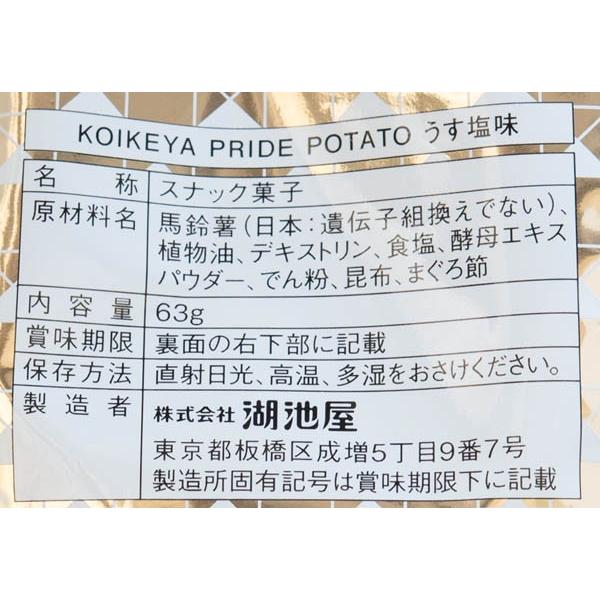 KOIKEYA PRIDE POTATO うす塩味
名称 スナック菓子
原材料名 馬鈴薯(日本:遺伝子組換えでない)、
植物油、デキストリン、食塩、酵母エキス
パウダー、でん粉、昆布、まぐろ節
内容量 63g
賞味期限 裏面の右下部に記載
保存方法 直射日光、高温、多湿をおさけください。
製造者 株式会社 湖池屋
東京都板橋区成増5丁目9番7号
製造所固有記号は賞味期限下に記載